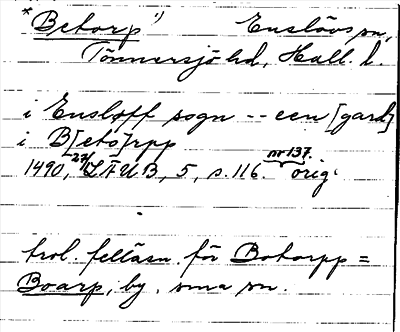 *Betorp 1) Enslövs sn,
Tönnersjö hd, Hall. l.
i Ensloff sogn -- een [gard]
i B[eto]rpp
1490, 27/ LÄUB, 5, s. 116. nr 137. orig.
trol. felläsn. för Botorpp =
Boarp, by, sma sn.